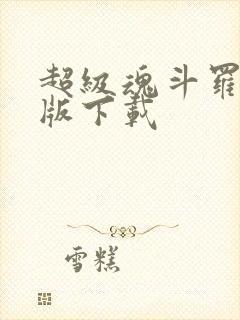 超級魂斗羅
版下載
雪糕